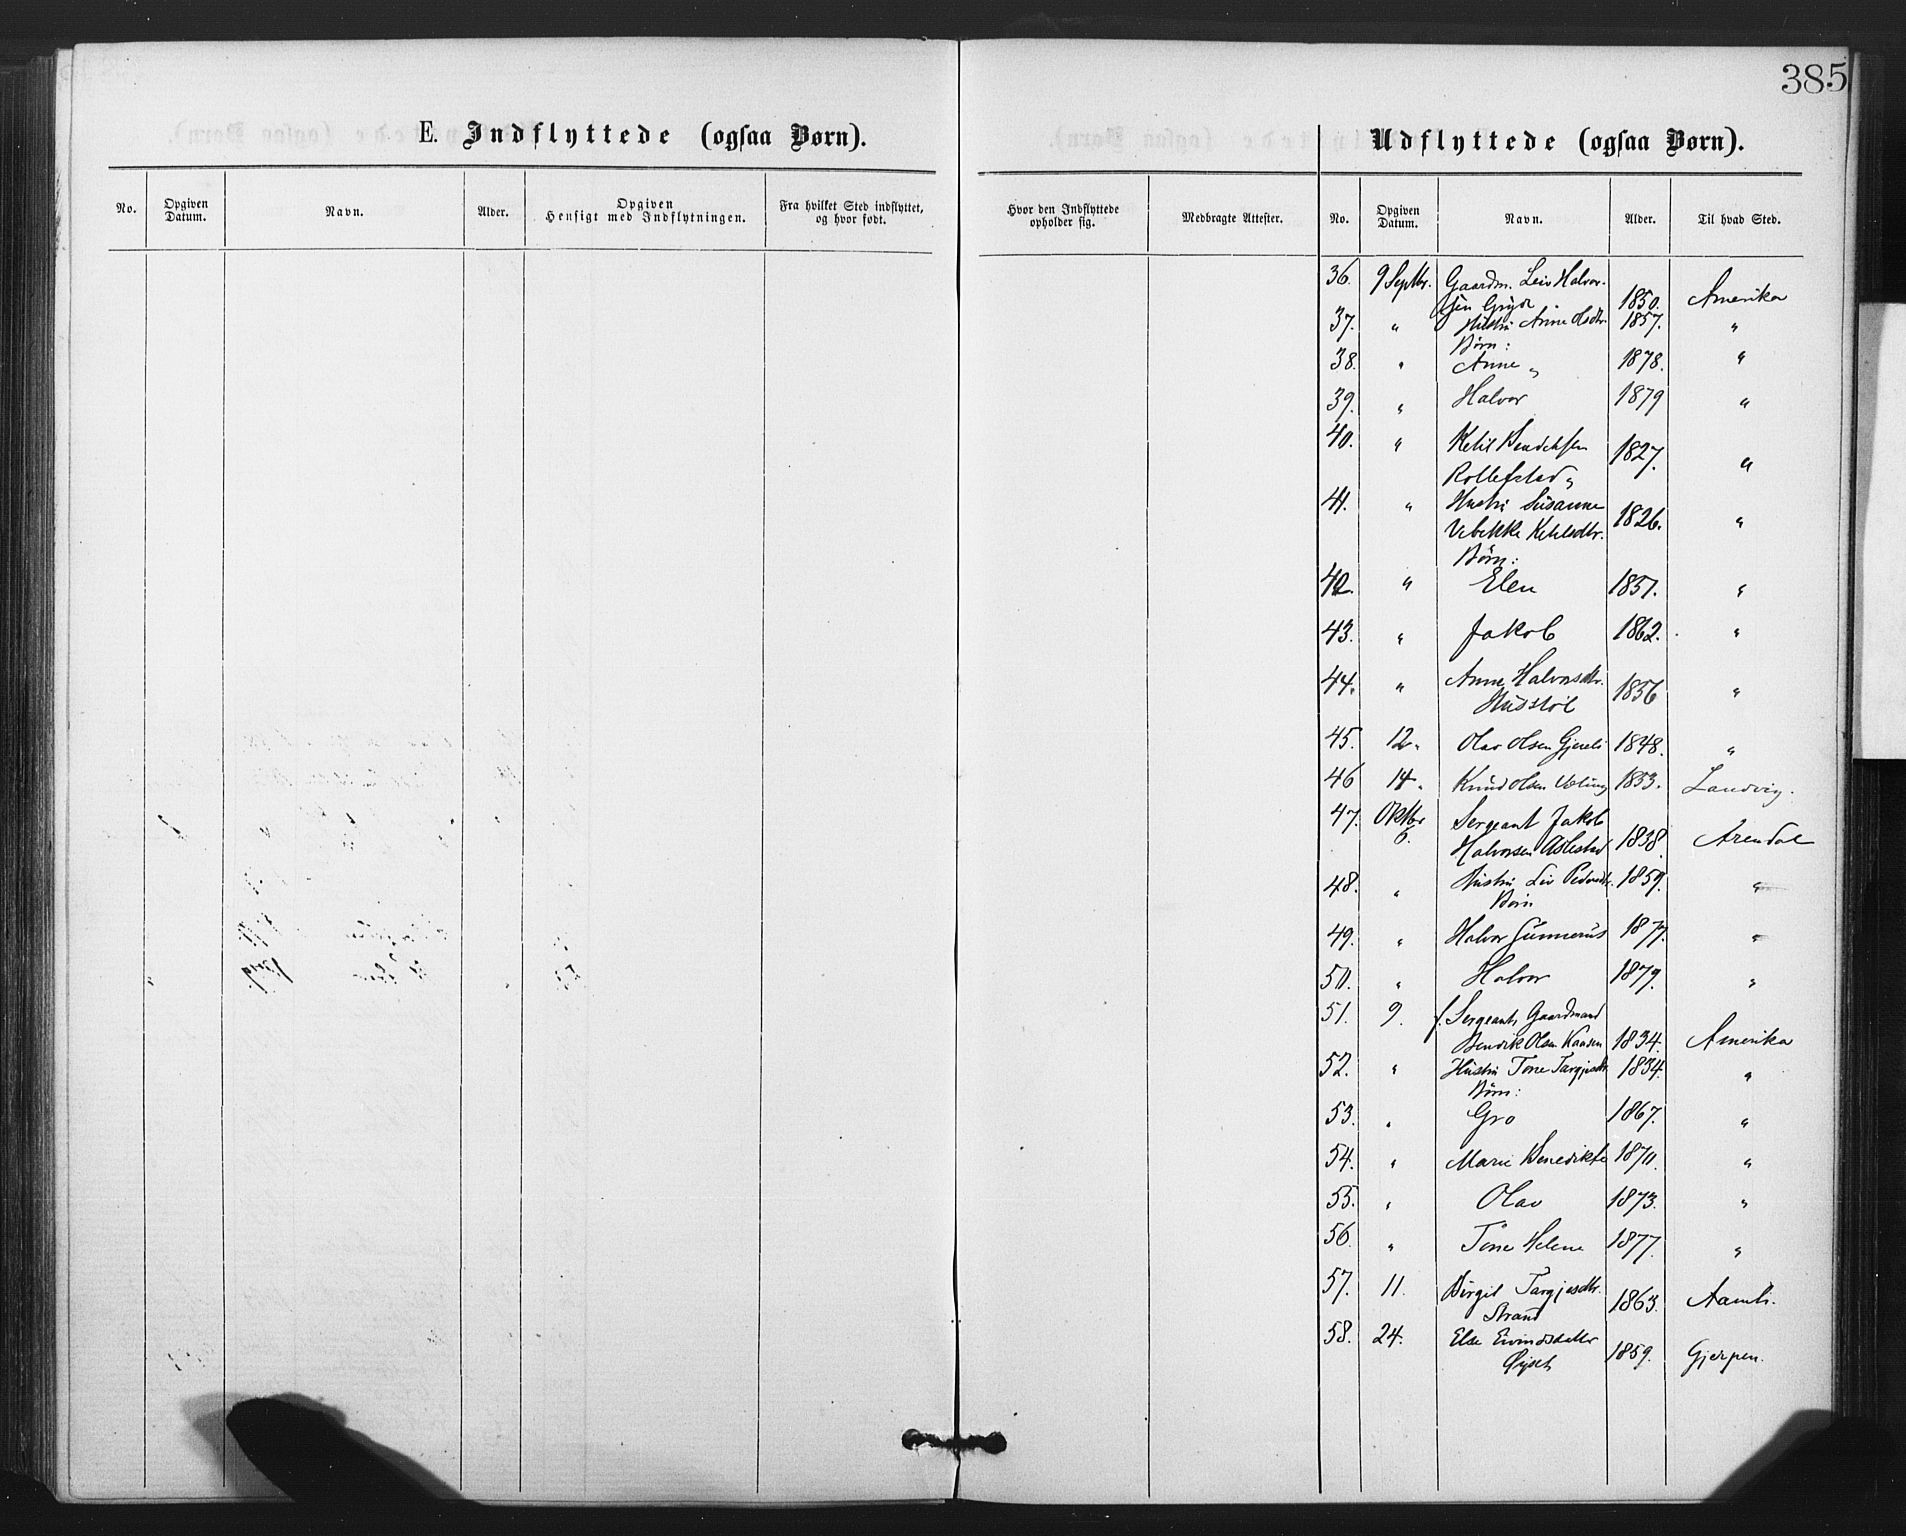 385
E. Indflyttede (ogsaa Børn).
No.
Opgiven
Datum.
Navn.
Alder.
Opgiven
Hensigt med Indflytningen.
Fra hvilket Sted indflyttet,
og hvor født.
Hvor den Indflyttede
opholder sig.
Medbragte Attester.
Udflyttede (ogsaa Børn).
No.
Opgiven
Datum.
Navn.
Alder.
Til hvad Sted.
36. 9 Septbr. Gaardm. Leiv Halvor-
sen 1850. Amerika
37. " Hustru Anne Olsdtr. 1857. "
Børn:
38. " Anne " 1878. "
39. " Halvor 1879 "
40. " Ketil 1827. "
Rollefstad "
41. " Hustru Susanne
Vibekke Ketilsdtr. 1826. "
Børn:
42. " Elen 1857. "
43. " Jakob 1862. "
44. " Anne Halvorsdtr. 1856 "
45. 12 " Olav Olsen 1848. "
46 14 " Knud Olsen 1853. Landvig.
47. Oktbr Sergeant Jakob
6. Halvorsen Aslestad 1838. Arendal
48. " Hustru Liv 1859. "
Børn
49. " Halvor Gunnerus 1877. "
50. " Halvor 1879. "
51. 9. f. Sergeant, Gaardmand
Bendik Olsen Kaasen 1834. Amerika
52. " Hustru Tone Targjesdtr. 1834. "
Børn:
53. " Gro 1867. "
54. " Marie Benedikte 1870. "
55. " Olav 1873. "
56. " Tone Helene 1877. "
57. 11. Birgit Targjesdtr.
Strand 1863. Aamli.
58. 24. Else Eivindsdatter
1859. Gjerpen.